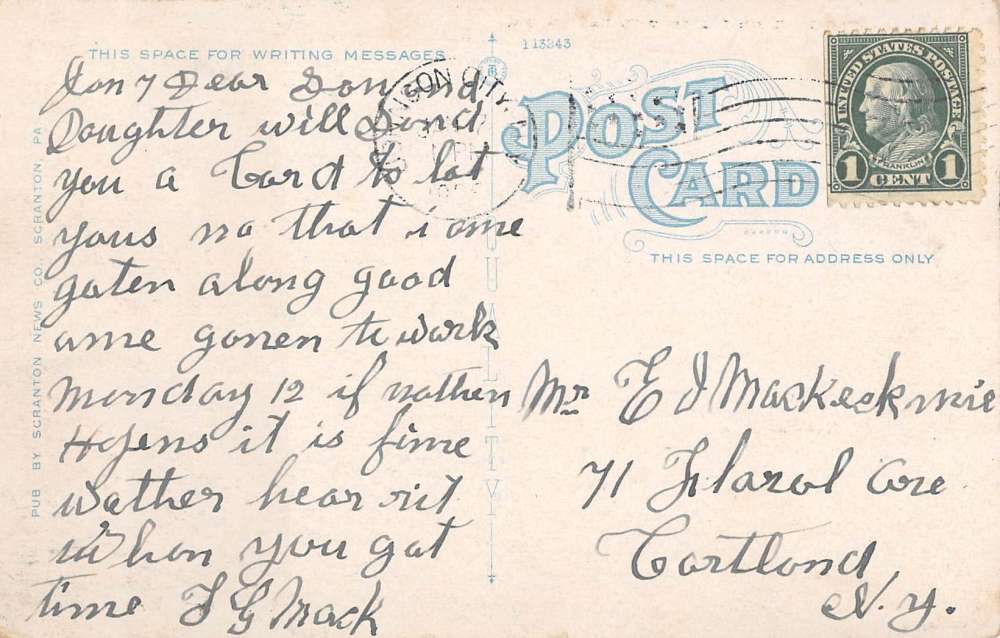 THIS SPACE FOR WRITING MESSAGES
Jan 7 Dear Son and
Doughter will Send
you a Card to lat
yous no that i ame
gaten along good
ame gonen to work
monday 12 if nathen
Hapens it is fine
wather hear rit
whan you gat
time J G Mack
PUB BY SCRANTON NEWS CO., SCRANTON, PA
QUALITY
113243
SON CITY
POST
CARD
THIS SPACE FOR ADDRESS ONLY
UNITED STATES POSTAGE
FRANKLIN
1 CENT 1
Mr E J Mackecknie
71 Flarol Ave
Cortland
N.Y.